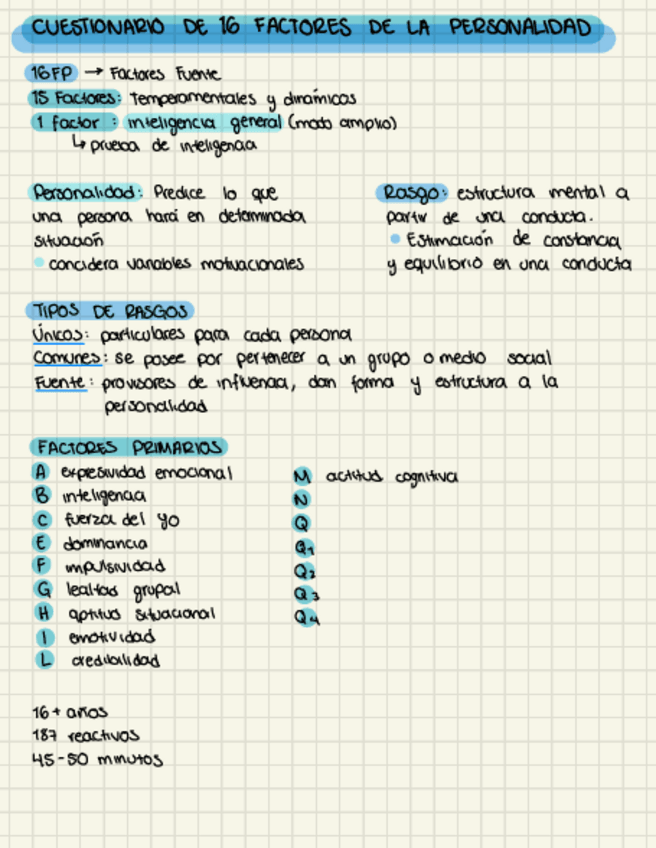 CUESTIONARIO DE 16 FACTORES DE LA PERSONALIDAD
16FP → Factores Fuente
15 Factores: Temperamentales y dinámicos
1 factor: inteligencia general (modo amplio)
↳ prueba de inteligencia
Personalidad: Predice lo que
una persona hará en determinada
situación
• concidera variables motivacionales
Rasgo: estructura mental a
partir de una conducta.
• Estimación de constancia
y equilibrio en una conducta
TIPOS DE RASGOS
Únicos: particulares para cada persona
Comunes: se posee por pertenecer a un grupo o medio social
Fuente: provisores de influencia, dan forma y estructura a la
personalidad
FACTORES PRIMARIOS
A expresividad emocional
B inteligencia
C fuerza del yo
E dominancia
F impulsividad
G lealtad grupal
H aptitud situacional
I emotividad
L credibilidad
M actitud cognitiva
N
Q
Q1
Q2
Q3
Q4
16+ años
187 reactivos
45-50 minutos